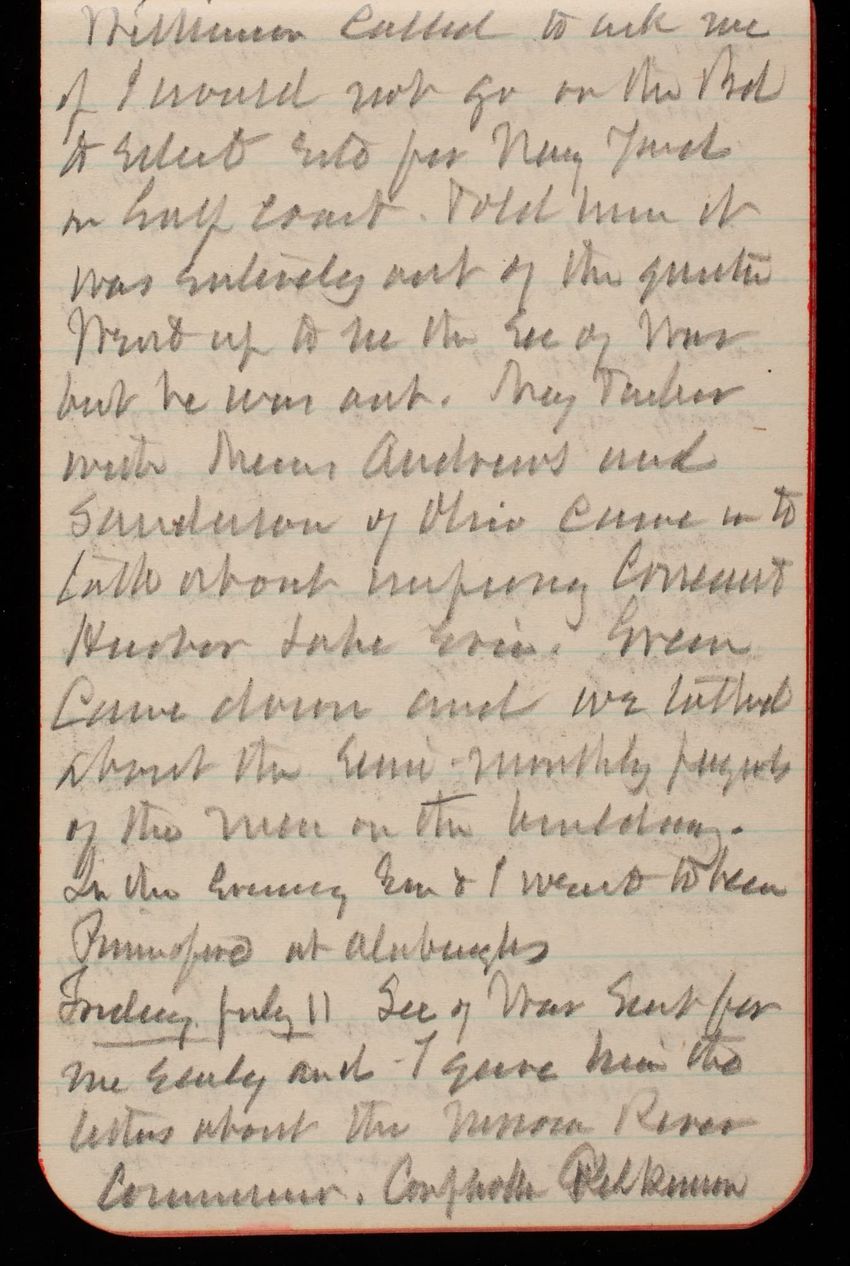 Williamson called to ask me
if I would not go on the Bd
to select site for Navy Yard
on Gulf coast. Told him it
was entirely out of the question
Went up to see the Sec of War
but he was out. May Tucker
with Messrs Andrews and
Sanderson of Ohio came in to
talk about improving Conneaut
Harbor Lake Erie. Green
came down and we talked
about the semi-monthly payrolls
of the men on the building.
In the evening Em & I went to hear
Pinnafore at Albaughs
Friday July 11 Sec of War sent for
me early and I gave him the
letters about the Missouri River
Commission.